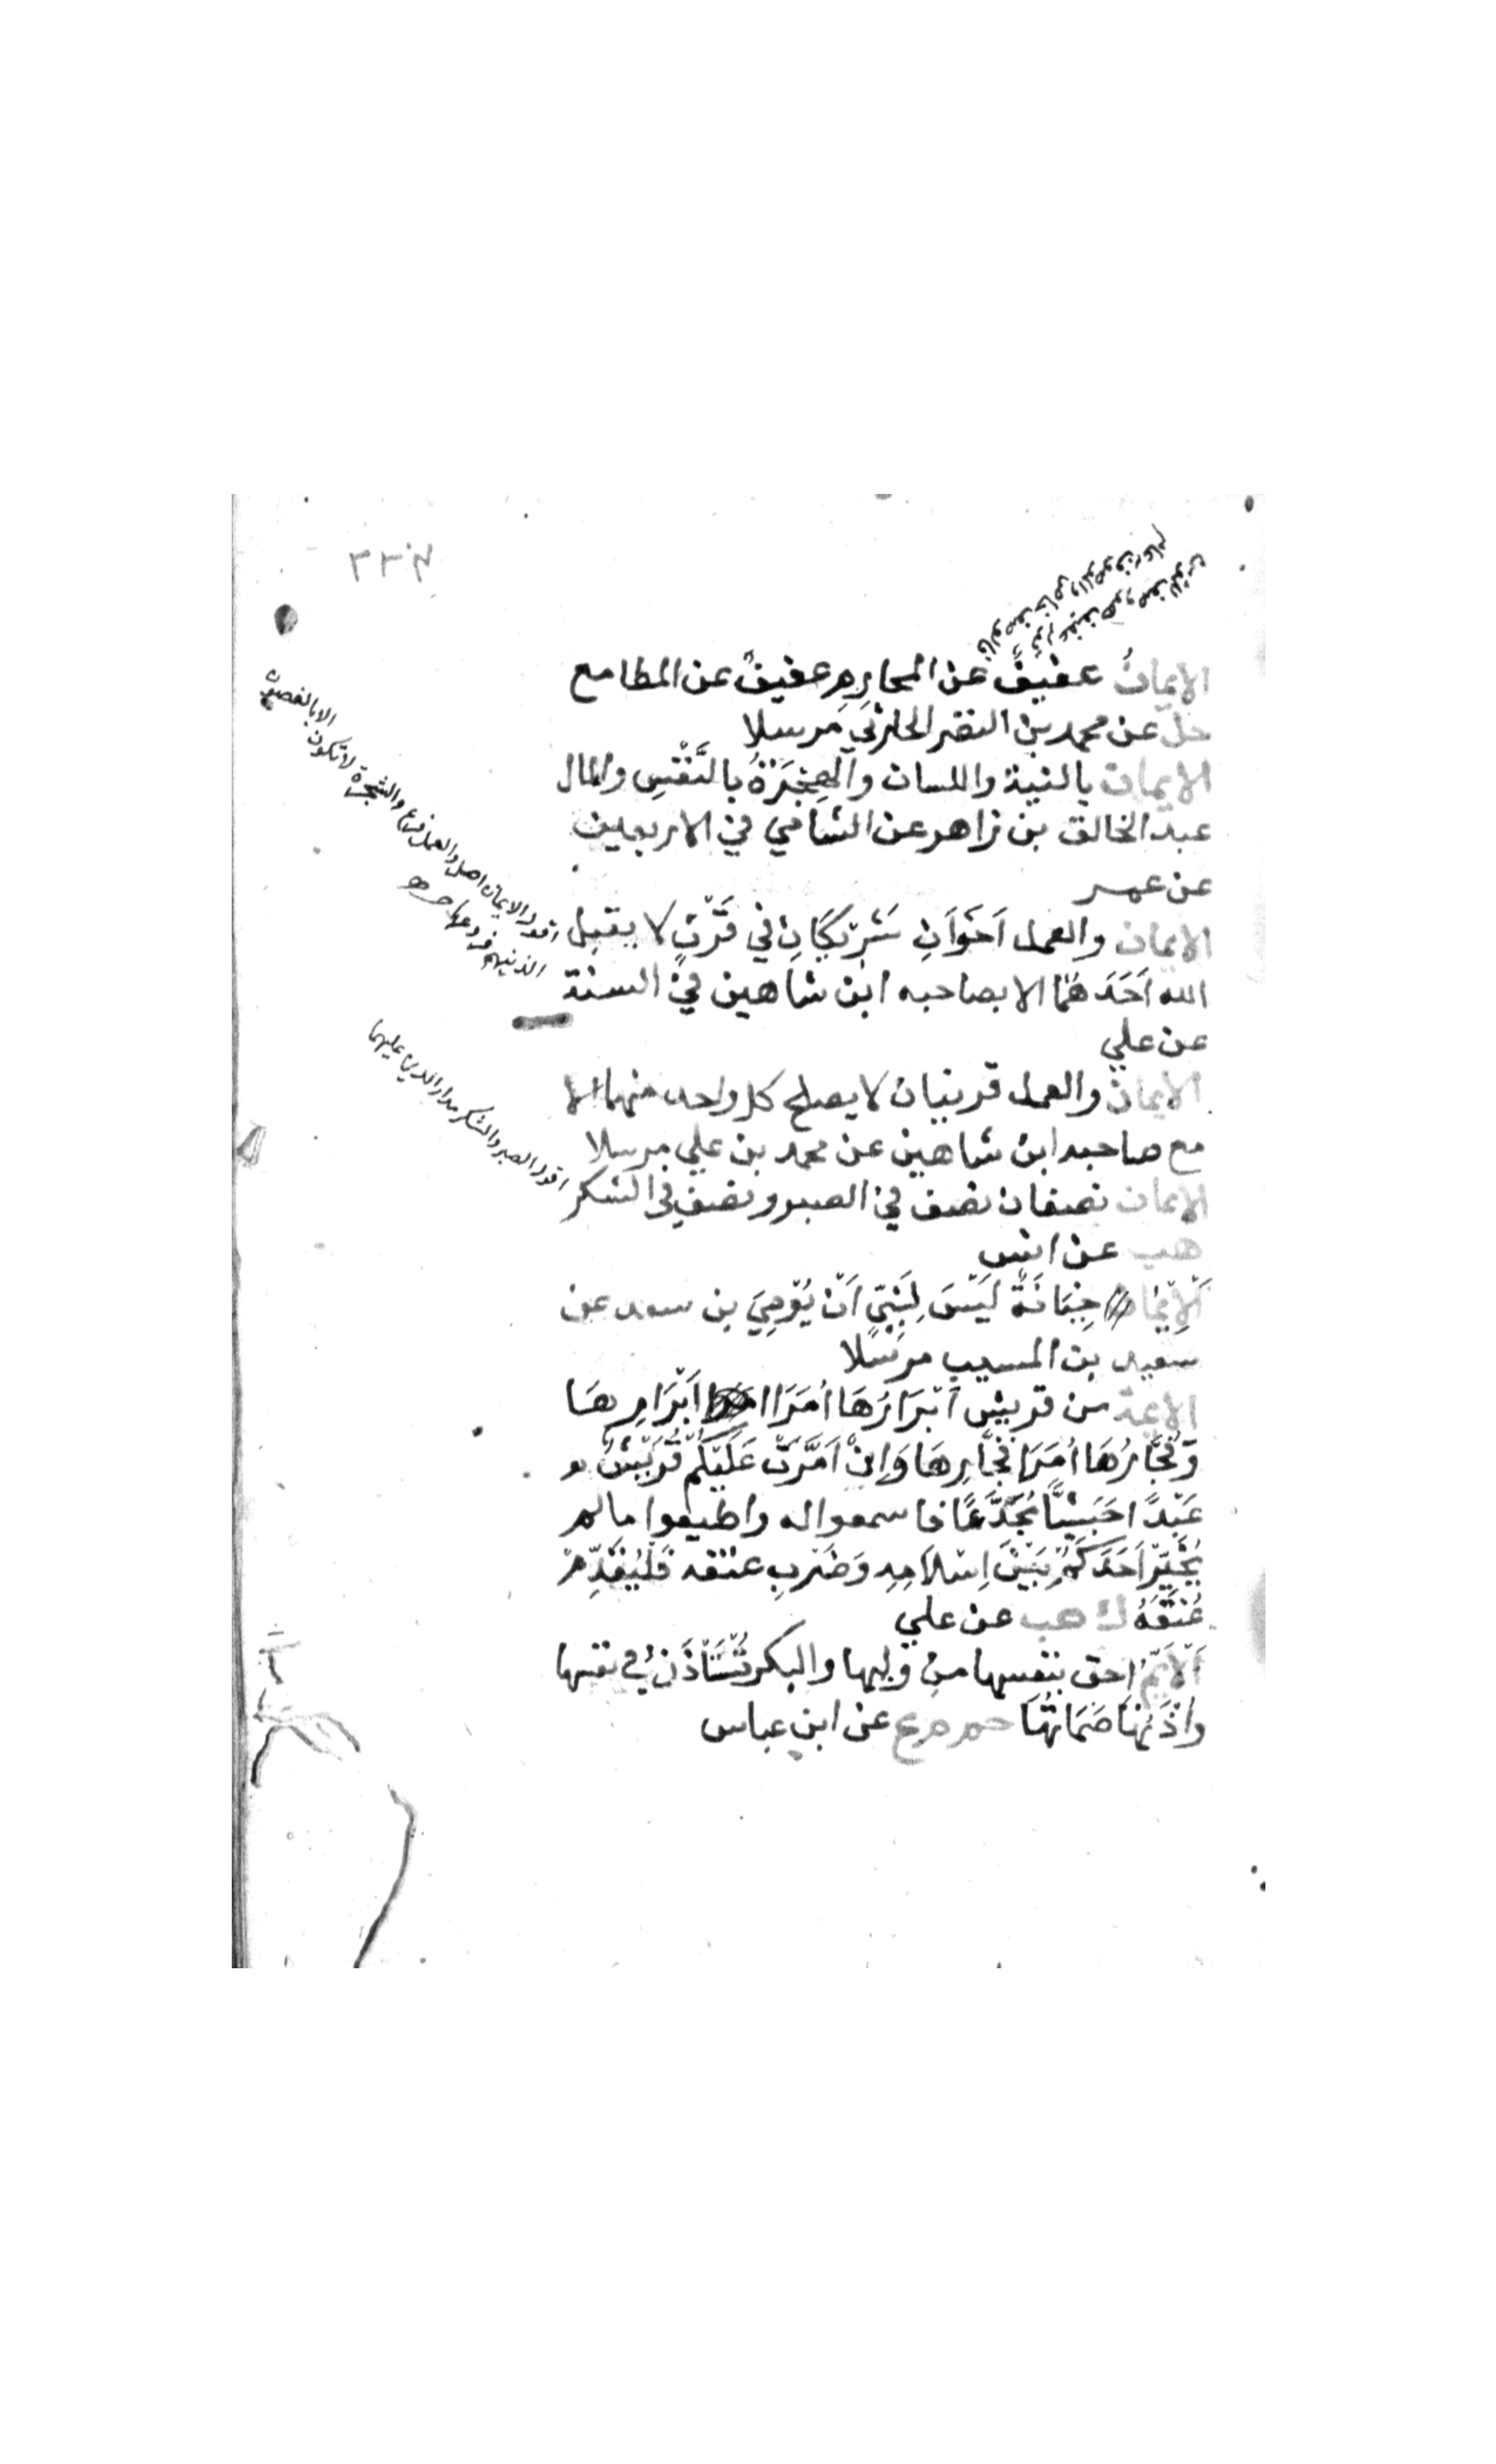 الايمانُ عفيفٌ عن المحارم عفيفٌ عن المطامع
حل عن محمد بن النضر الحارثي مرسلا
الايمان بالنية واللسان والهِجْرَةُ بالنَّفْسِ والمال
عبد الخالق بن زاهر عن الشامي في الاربعين
عن عمر
الايمان والعمل اَخَوَاَنِ شَرِيْكَانِ في قَرَنٍ لا يقبل
الله اَحَدَهُمَا الا بصاحبه ابن شاهين في السنة
عن علي
الايمان والعمل قرينان لا يصلح كل واحد منهما الا
مع صاحبه ابن شاهين عن محمد بن علي مرسلا
الايمان نصفان نصف في الصبر ونصف في الشكر
هب عن انس
اَلْاِيْمَا خِيَانَةٌ لَيْسَ لِنَبِيٍّ اَنْ يُوْمِيَ بن سعد عن
سعيد بن المسيب مرسلا
الايمة من قريش اَبْرَارُهَا اُمَرَاا اَبْرَارِهَا
وَفُجَّارُهَا اُمَرَا فُجَّارِهَا وَاِنْ اَمَّرَتْ عَلَيْكُمْ قُرَيْشٌ
عَبْدًا حَبَشِيًّا مُجَدَّعًا فاسمعوا له واطيعوا ما لم
يُخَيَّرْ اَحَدُكُمْ بَيْنَ اِسْلَامِهِ وَضَرْبِ عنقه فَلْيُقَدِّمْ
عُنُقَهُ ك هب عن علي
اَلْاَيِّمُ احق بنفسها من وليها والبكر تُسْتَاْذَنُ في نفسها
واِذْنُهَا صُمَاتُهَا حم م ع عن ابن عباس
اقول الايمان اصل والعمل فرع والشجرة لا تكون الا بالغصن
اقول الصبر والشكر مدار الدين عليهما